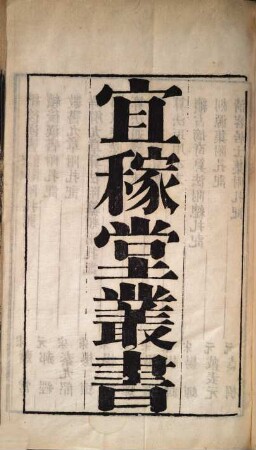 宜稼堂叢書